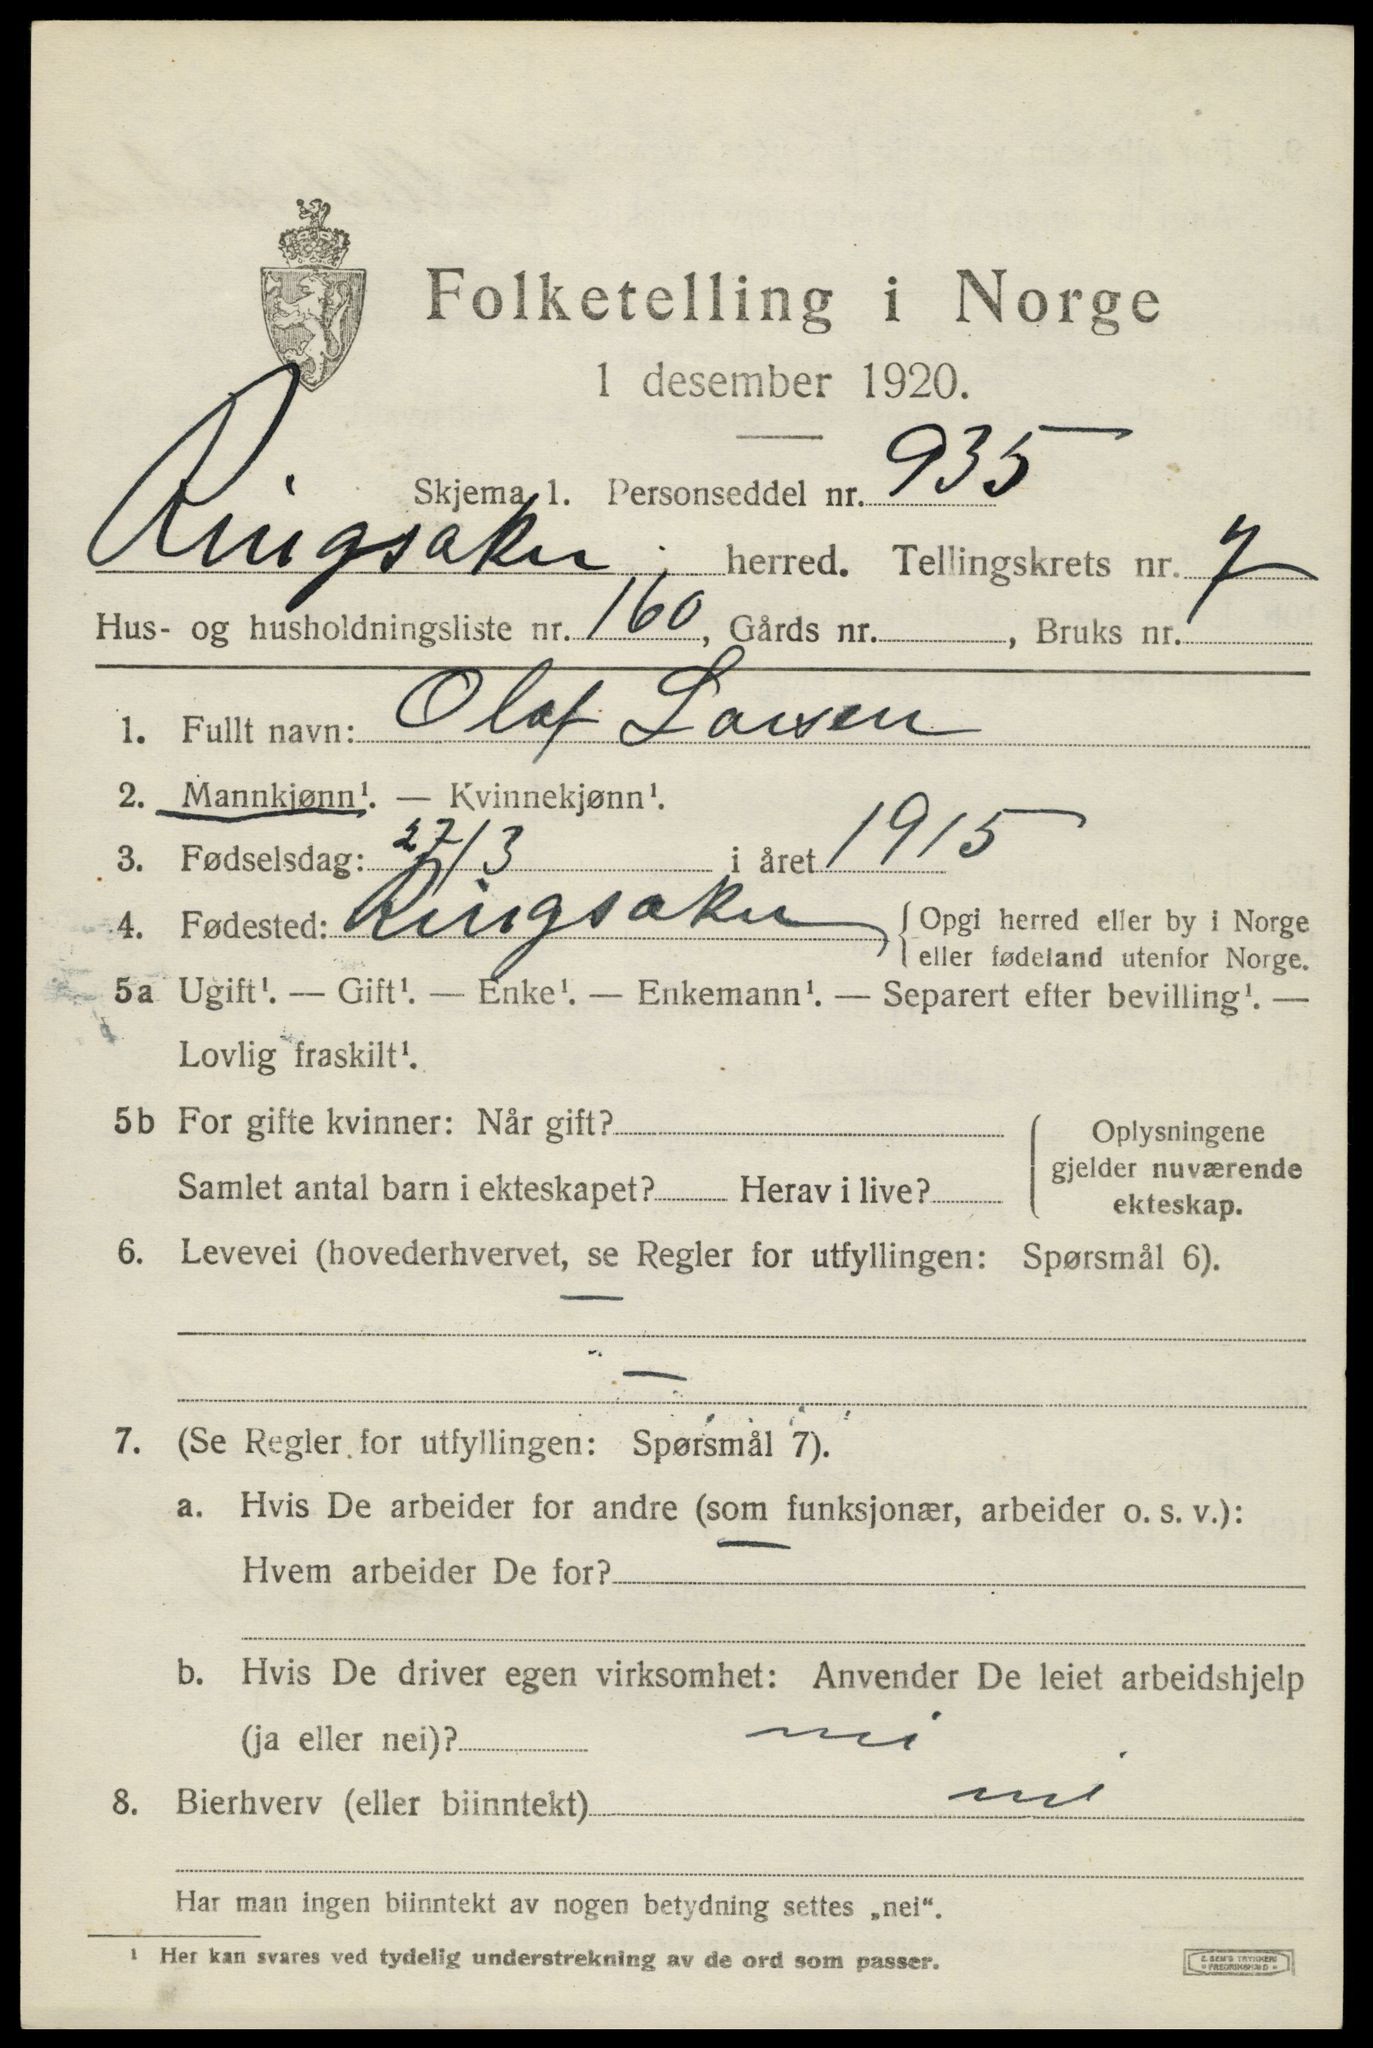 Folketelling i Norge
1 desember 1920.
Skjema 1. Personseddel nr. 935
Ringsaker herred. Tellingskrets nr. 7
Hus- og husholdningsliste nr. 160, Gårds nr. , Bruks nr.
1. Fullt navn: Olaf Larsen
2. Mannkjønn¹. — Kvinnekjønn¹.
3. Fødselsdag: 27/3 i året 1915
4. Fødested: Ringsaker { Opgi herred eller by i Norge
eller fødeland utenfor Norge.
5a Ugift¹. — Gift¹. — Enke¹. — Enkemann¹. — Separert efter bevilling¹. —
Lovlig fraskilt¹.
5b For gifte kvinner: Når gift?
Samlet antal barn i ekteskapet? Herav i live?
{ Oplysningene
gjelder nuværende
ekteskap.
6. Levevei (hovederhvervet, se Regler for utfyllingen: Spørsmål 6).
—
—
7. (Se Regler for utfyllingen: Spørsmål 7).
a. Hvis De arbeider for andre (som funksjonær, arbeider o. s. v.):
Hvem arbeider De for? —
b. Hvis De driver egen virksomhet: Anvender De leiet arbeidshjelp
(ja eller nei)? nei
8. Bierhverv (eller biinntekt) nei
Har man ingen biinntekt av nogen betydning settes „nei“.
¹ Her kan svares ved tydelig understrekning av de ord som passer.